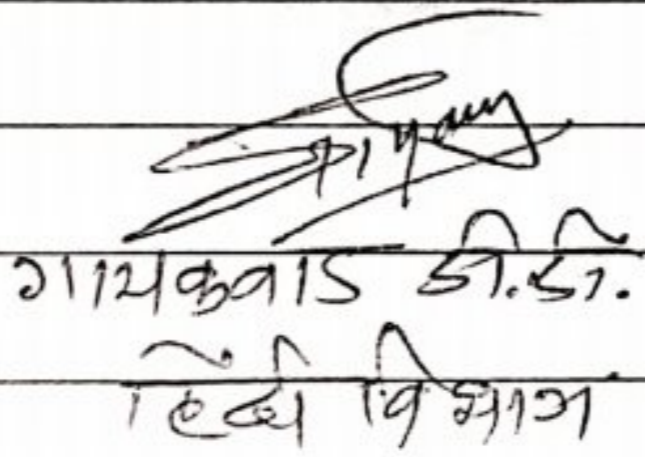 गायकवाड डी.डी.
हिंदी विभाग